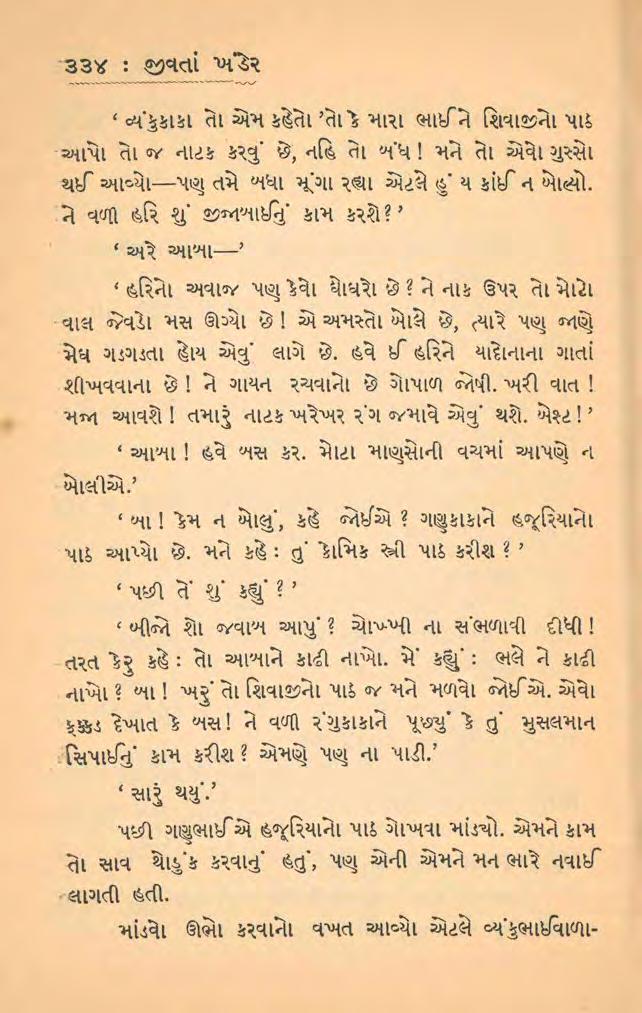 ૩૩૪ : જીવતાં ખંડેર
‘ વ્યંકુકાકા તો એમ કહેતો ’તો કે મારા ભાઈને શિવાજીનો પાઠ
આપો તો જ નાટક કરવું છે, નહિ તો બંધ! મને તો એવો ગુસ્સો
થઈ આવ્યો—પણ તમે બધા મૂંગા રહ્યા એટલે હું ય કાંઈ ન બોલ્યો.
ને વળી હરિ શું જીજાબાઈનું કામ કરશે?’
‘ અરે આબા—’
‘ હરિનો અવાજ પણ કેવો ઘોઘરો છે? ને નાક ઉપર તો મોટો
વાલ જેવડો મસ ઊગ્યો છે! એ અમસ્તો બોલે છે, ત્યારે પણ જાણે
મેઘ ગડગડતા હોય એવું લાગે છે. હવે ઈ હરિને યાદોનાના ગાતાં
શીખવવાના છે! ને ગાયન રચવાનો છે ગોપાળ જોષી. ખરી વાત!
મજા આવશે! તમારું નાટક ખરેખર રંગ જમાવે એવું થશે. બેશ્ટ!’
‘ આબા! હવે બસ કર. મોટા માણસોની વચમાં આપણે ન
બોલીએ.’
‘ બા! કેમ ન બોલું, કહે જોઈએ? ગણુકાકાને હજૂરિયાનો
પાઠ આપ્યો છે. મને કહે: તું કોમિક સ્ત્રી પાઠ કરીશ? ’
‘ પછી તેં શું કહ્યું?’
‘ બીજો શો જવાબ આપું? ચોખ્ખી ના સંભળાવી દીધી!
તરત કેરુ કહે: તો આબાને કાઢી નાખો. મેં કહ્યું: ભલે ને કાઢી
નાખો? બા! ખરું તો શિવાજીનો પાઠ જ મને મળવો જોઈએ. એવો
ફક્કડ દેખાત કે બસ! ને વળી રંગુકાકાને પૂછ્યું કે તું મુસલમાન
સિપાઈનું કામ કરીશ? એમણે પણ ના પાડી.’
‘ સારું થયું.’
પછી ગણુભાઈએ હજૂરિયાનો પાઠ ગોખવા માંડ્યો. એમને કામ
તો સાવ થોડુંક કરવાનું હતું, પણ એની એમને મન ભારે નવાઈ
લાગતી હતી.
માંડવો ઊભો કરવાનો વખત આવ્યો એટલે વ્યંકુભાઈવાળા-